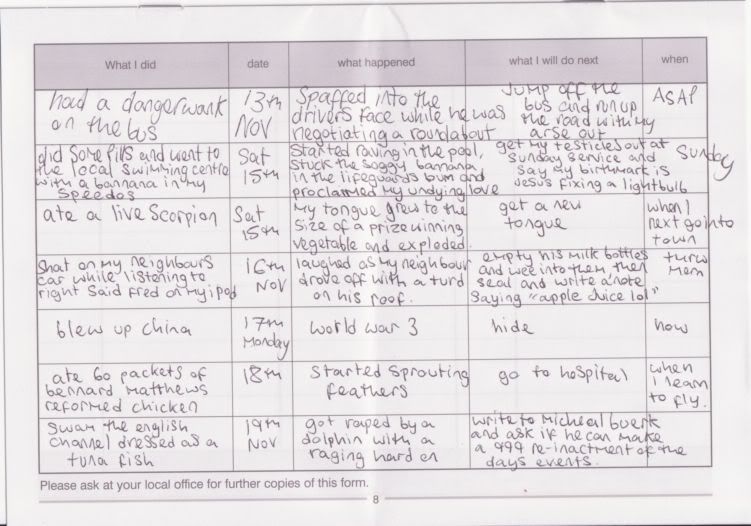 What I did
date
what happened
what I will do next
when
had a dangerwank
on the bus
13th
NOV
Spaffed into the
drivers face while he was
negotiating a roundabout
Jump off the
bus and run up
the road with my
arse out
ASAP
did some pills and went to
the local swimming centre
with a bannana in my
speedos
Sat
15th
Started raving in the pool,
stuck the soggy bannana
in the lifeguards bum and
proclaimed my undying love
get my testicles out at
Sunday service and
say my birthmark is
Jesus fixing a lightbulb
Sunday
ate a live Scorpion
Sat
15th
My tongue grew to the
size of a prize winning
vegetable and exploded.
get a new
tongue
when I
next go into
town
Shat on my neighbours
car while listening to
right said fred on my ipod
16th
NOV
laughed as my neighbour
drove off with a turd
on his roof.
empty his milk bottles
and wee into them then
seal and write a note
Saying "apple Juice lol"
blew up china
17th
Monday
world war 3
hide
now
ate 60 packets of
bernard matthews
reformed chicken
18th
Started Sprouting
feathers
go to hospital
when
I learn
to fly.
Swam the english
channel dressed as a
tuna fish
19th
NOV
got raped by a
dolphin with a
raging hard on
write to Micheal buerk
and ask if he can make
a 999 re-inactment of the
days events.
Please ask at your local office for further copies of this form.
8